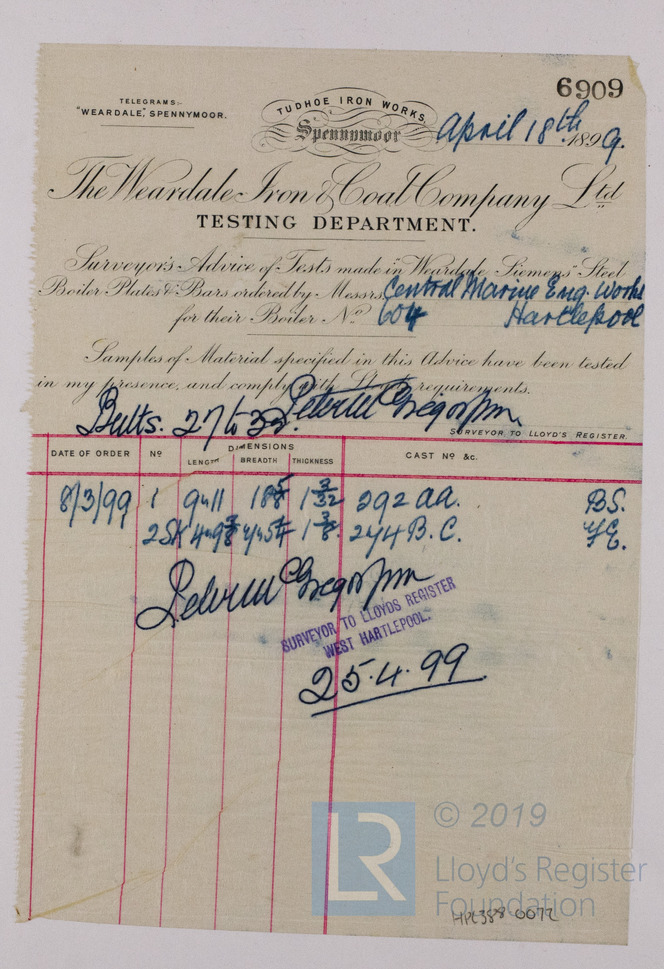 6909
TELEGRAMS:-
"WEARDALE," SPENNYMOOR.
TUDHOE IRON WORKS,
Spennymoor
April 18th 1899.
The Weardale Iron & Coal Company Ltd
TESTING DEPARTMENT.
Surveyor's Advice of Tests made in Weardale Siemens' Steel
Boiler Plates & Bars ordered by Messrs Central Marine Eng. Works
for their Boiler No 604 Hartlepool
Samples of Material specified in this Advice have been tested
in my presence, and comply with requirements.
Butts. 27 to
SURVEYOR TO LLOYD'S REGISTER.
DATE OF ORDER No DIMENSIONS CAST No &c.
LENGTH BREADTH THICKNESS
8/3/99 1 9"11 1 3/32 292 AA. B.S.
2 1 3/8 244 B.C. Y.E.
SURVEYOR TO LLOYDS REGISTER
WEST HARTLEPOOL.
25.4.99
LR
© 2019
Lloyd's Register
Foundation
HPL388 0072